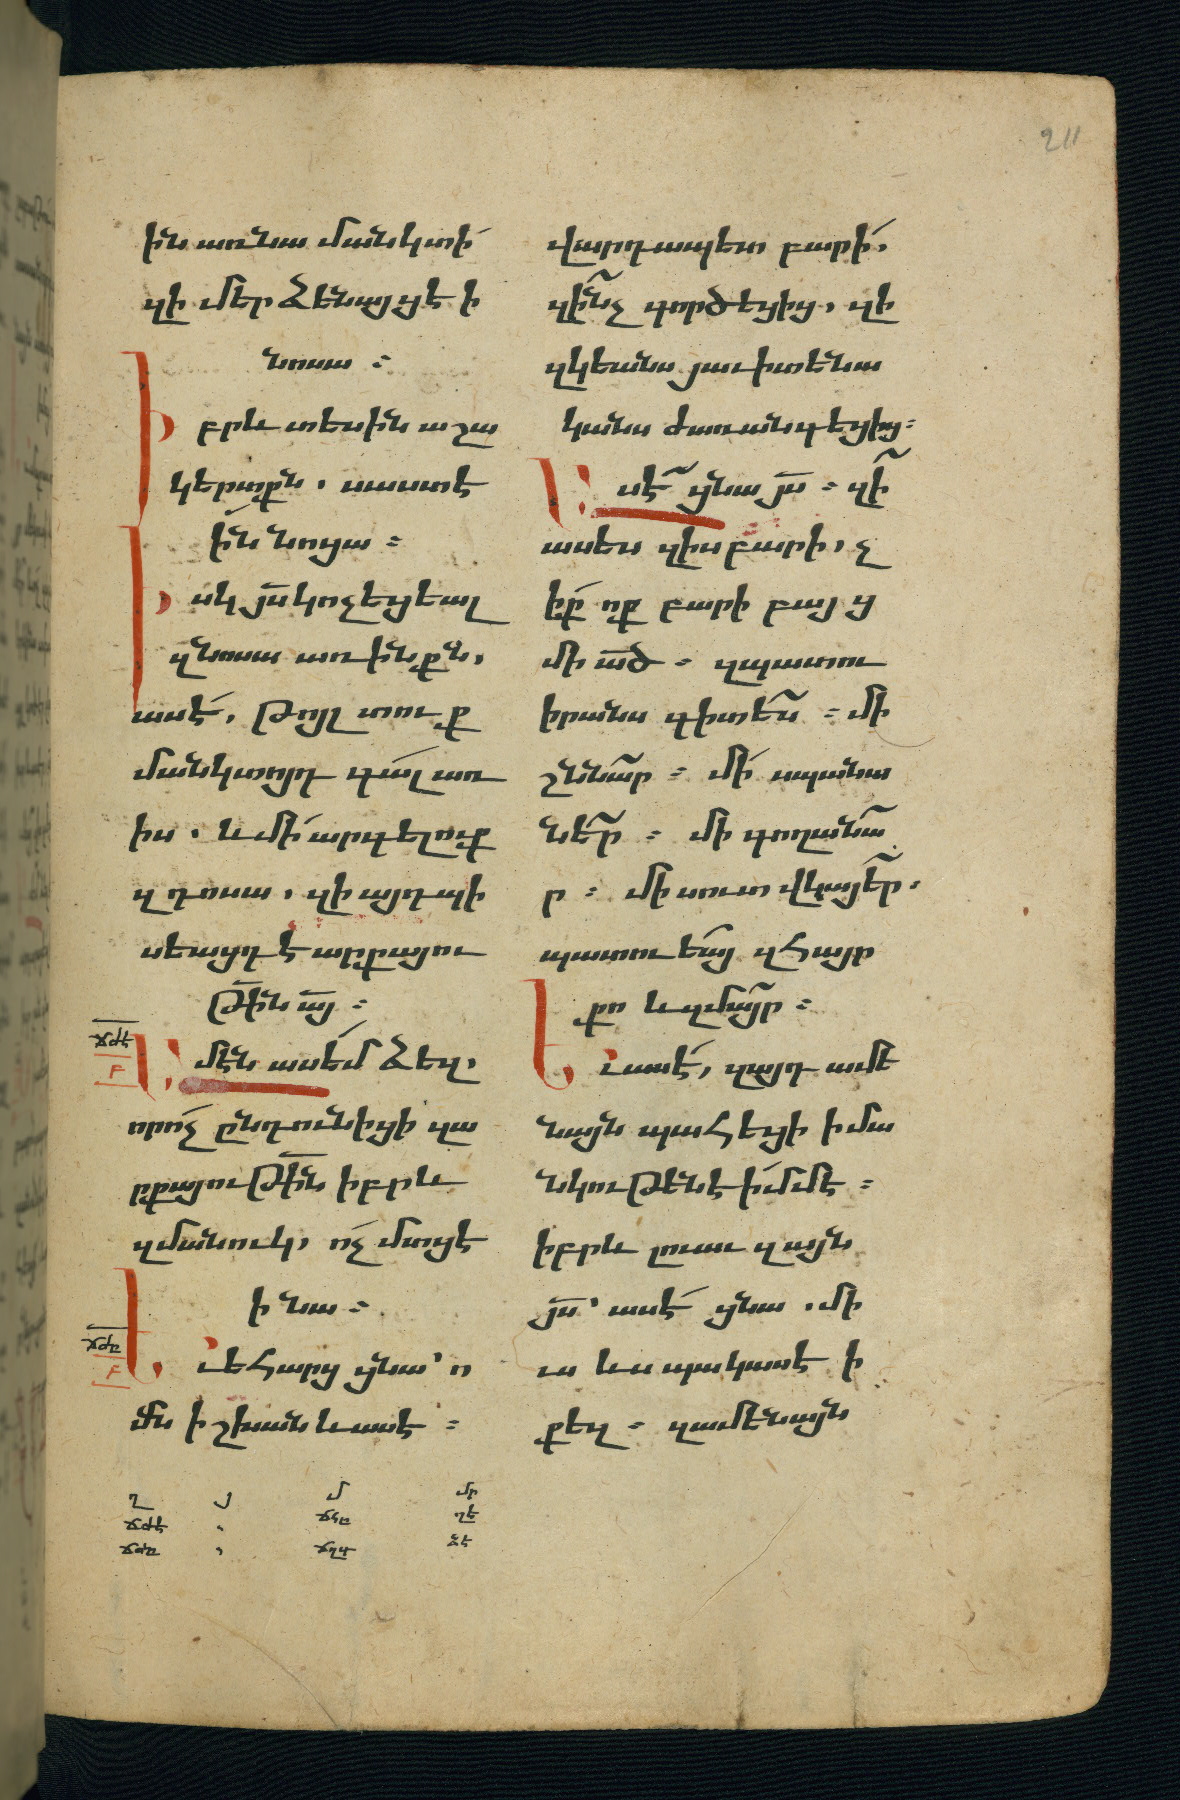 211
ին առնա մանկտի՛
զի մերձենայցէ ի
նոսա ։
Իբրև տեսին աշա
կերտքն . սաստէ
ին նոցա ։
Իսկ յ̅ս կոչեցեալ
զնոսա առ ինքն,
ասէ՛, Թոյլ տուք
մանկտոյդ գա՛լ առ
իս . և մի՛ արգելուք
զդոսա , զի այդպի
սեացդ է արքայու
թի̅ն ա̅յ ։
ՃԺԷ
Բ
Ամէն ասե՛մ ձեզ,
որ ո՛չ ընդունիցի զա
րքայութի̅ն իբրև
զմանուկ, ո՛չ մտցէ
ի նա ։
ՃԺԸ
Բ
Եւ եհարց ցնա՝ ո
մն իշխան և ասէ ։
վարդապետ բարի՛,
զի՞նչ գործեցից, զի
զկեանս յաւիտենա
կանս ժառանգեցից։
Ասէ՛ ցնա յ̅ս ։ զի՞
ասես զիս բարի, չ
ի՛ք ոք բարի բայց
մի ա̅ծ . զպատու
իրանս գիտե՞ս ։ մի
շննա՛ր ։ մի՛ սպանա
նե՛ր ։ մի գողանա՛
ր ։ մի սուտ վկայե՛ր .
պատուեա՛ զհայր
քո և զմայր ։
Եւ ասէ՛, զայդ ամե
նայն պահեցի ի մա
նկութենէ ի՛մմէ ։
իբրև լուաւ զայն
յ̅ս՝ ասէ՛ ցնա . մի
ւս ևս պակասէ ի
քեզ . զամենայն